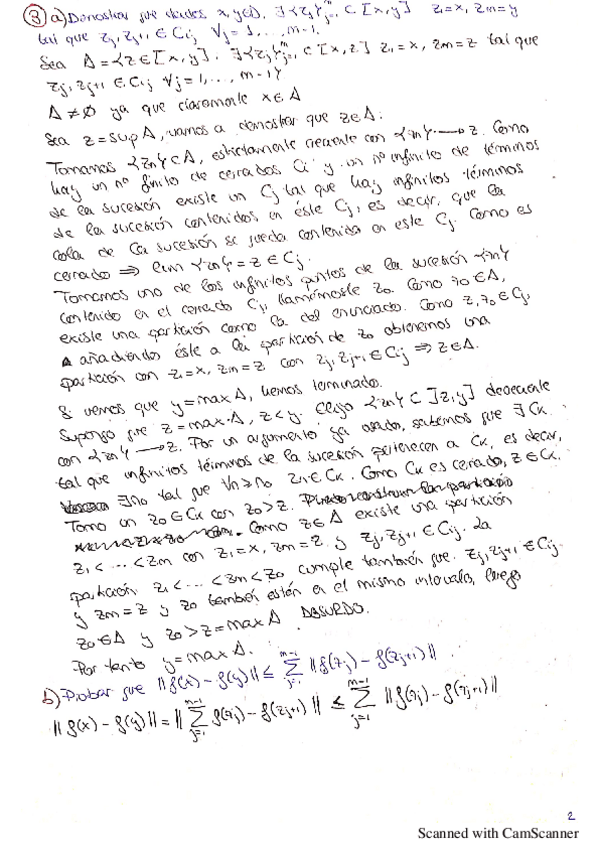 ③ a) Demostrar que dados x, y ∈ Ω, ∃ {zj}ᵐj=1 ⊂ [x, y] z1 = x, zm = y
tal que zj, zj+1 ∈ Cij ∀j = 1, ..., m-1.
Sea A = {z ∈ [x, y] : ∃ {zj}ᵐj=1 ⊂ [x, z] z1 = x, zm = z tal que
zj, zj+1 ∈ Cij ∀j = 1, ..., m-1}
A ≠ ∅ ya que claramente x ∈ A
Sea z = sup A, vamos a demostrar que z ∈ A:
Tomamos {zn} ⊂ A, estrictamente creciente con {zn} → z. Como
hay un nº finito de cerrados Ci y un nº infinito de términos
de la sucesión existe un Cj tal que hay infinitos términos
de la sucesión contenidos en éste Cj, es decir, que la
cola de la sucesión se queda contenida en este Cj. Como es
cerrado ⇒ lim {zn} = z ∈ Cj.
Tomamos uno de los infinitos puntos de la sucesión {zn}
contenido en el cerrado Cj, llamémosle z0. Como z0 ∈ A,
existe una partición como la del enunciado. Como z, z0 ∈ Cj,
añadiendo éste a la partición de z0 obtenemos una
partición con z1 = x, zm = z con zj, zj+1 ∈ Cij ⇒ z ∈ A.
Si vemos que y = max A, hemos terminado.
Supongo que z = max A, z < y. Elijo {zn} ⊂ ]z, y] decreciente
con {zn} → z. Por un argumento ya usado, sabemos que ∃ Ck
tal que infinitos términos de la sucesión pertenecen a Ck, es decir,
∃ n0 tal que ∀n ≥ n0 zn ∈ Ck. Como Ck es cerrado, z ∈ Ck.
Tomo un z0 ∈ Ck con z0 > z.
Como z ∈ A existe una partición
z1 < ... < zm con z1 = x, zm = z y zj, zj+1 ∈ Cij. La
partición z1 < ... < zm < z0 cumple también que zj, zj+1 ∈ Cij
y zm = z y z0 también están en el mismo intervalo, luego
z0 ∈ A y z0 > z = max A ABSURDO.
Por tanto y = max A.
b) Probar que ||f(x) - f(y)|| ≤ ∑ᵐ⁻¹j=1 ||f(zj) - f(zj+1)||
||f(x) - f(y)|| = ||∑ᵐ⁻¹j=1 f(zj) - f(zj+1)|| ≤ ∑ᵐ⁻¹j=1 ||f(zj) - f(zj+1)||
2
Scanned with CamScanner